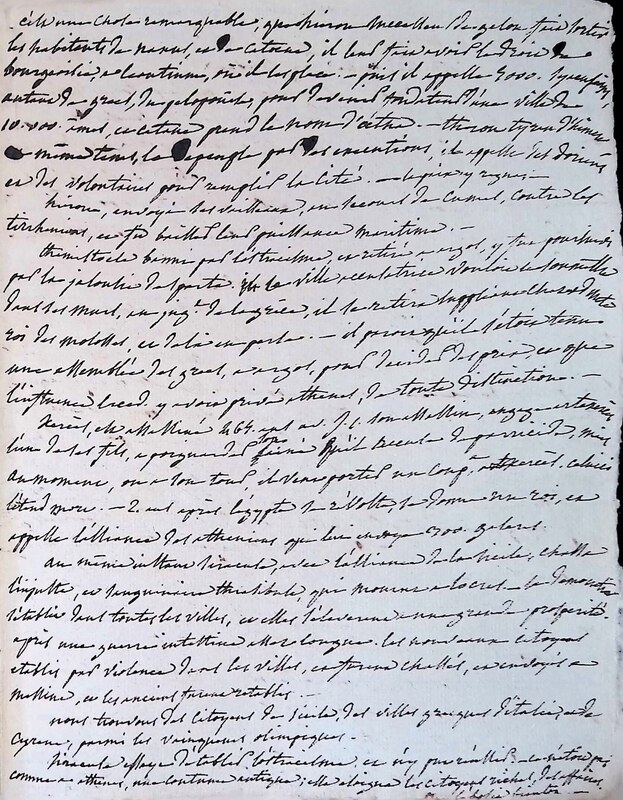 c'est une chose remarquable, que hieron successeur de gelon fait sortir
les habitants de naxus, et de catane, il leur fait avoir le droit de
bourgeoisie, a leontium, où il les place. - puis il appelle 5000. syracusains,
autant de grecs, du peloponèse, pour devenir fondateurs d'une ville de
10.000. âmes, et catane prend le nom d'etna. - theron tyran d'himere
en même tems, la depeuple par des executions, il appelle des doriens
et des volontaires pour remplir la cité. -
hieron, envoye des vaisseaux, au secours de cumes, contre les
tirrheniens, et fit baisser leur puissance maritime. -
themistocle banni par l'ostracisme, et retiré a argos, y fut poursuivi
par la jalousie de sparte. la ville accusatrice vouloit le soumettre
dans ses murs, au jug.t de la grèce, il se retira suppliant chez admete
roi des molosses, et de là en perse. - il paroit qu'il s'étoit tenu
une assemblée des grecs, a argos, pour decider des prix, et que
l'influence laced. y avoit privé athenes, de toute distinction. -
xerxès, est assassiné 464. ans av. J. C. son assassin, engage artaxerxès
l'un de ses fils, a poignarder son frère qu'il accuse de parricide, mais
au moment, où a son tour il veut porter un coup, a artaxerxès, celui ci
l'étend mort. - 2. ans après l'égypte se révolte, se donne un roi, et
appelle l'alliance des atheniens qui lui envoye 300. galeres.
au même instant siracuse, avec l'alliance de la sicile, chasse
l'injuste, et sanguinaire thrasibule, qui mourut a locres - la democratie
s'établit dans toutes les villes, et elles s'élevent a une grande prosperité.
après une guerre intestine assez longue. les nouveaux citoyens
etablis par violence dans les villes, en furent chassés, et envoyés a
messine, et les anciens furent retablis. -
nous trouvons des citoyens de sicile, des villes grecques d'italie, et de
cyrene, parmi les vainqueurs olimpiques.
siracuse essaye d'établir l'ostracisme, et n'y put réussir. - ce n'étoit pas
comme a athenes, une coutume antique; elle eloigna les citoyens riches, des affaires.